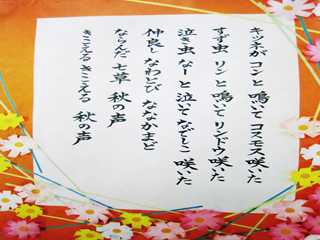 キツネが コンと 鳴いて コスモス 咲いた
すず虫 リンと 鳴いて リンドウ 咲いた
泣き虫 なーと 泣いて なでしこ 咲いた
仲良し なわとび ななかまど
ならんだ 七草 秋の声
きこえる きこえる 秋の声